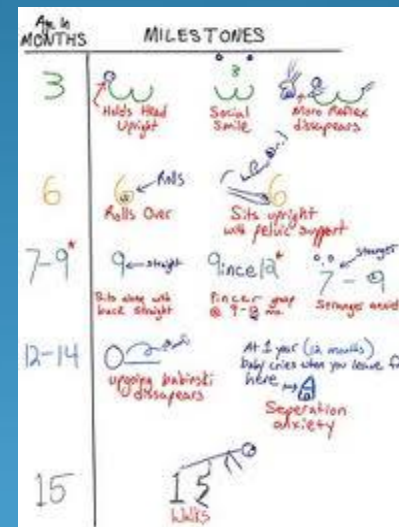 Age in
MONTHS
MILESTONES
3
Holds Head
Upright
Social
Smile
Moro Reflex
dissapears
6
6
Rolls
Rolls Over
6
Sits upright
with pelvic support
7-9*
9
straight
Sits along with
back straight
9ince12*
Pincer grasp
@ 9-12 mo
7-9
stranger
Stranger anxi
12-14
upgoing babinski
dissapears
At 1 year (12 months)
baby cries when you leave
here
Seperation
anxiety
15
15
Walks